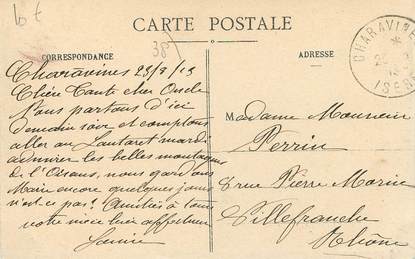 CARTE POSTALE
CORRESPONDANCE
ADRESSE
38
CHARAVINES
ISERE
Charavines 23/8/13
Chère Tante cher Oncle
Nous partons d'ici
demain soir et comptons
aller au Lautaret mardi
admirer les belles montagnes
de l'Oisans, nous gardons
Marie encore quelques jours
n'est-ce pas? Amitiés à tous
votre nièce bien affectueuse
Madame Monsieur
Perrin
8 rue Pierre Morin
Villefranche
Rhône